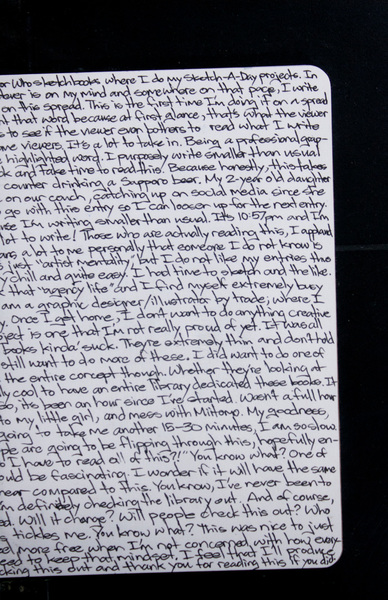 or Who sketchbooks where I do my Sketch-A-Day projects. In
is on my mind and somewhere on that page, I write
on this spread. This is the first time I'm doing it on a spread
that word because at first glance, that's what the viewer
to see if the viewer even bothers to read what I write
viewers. It's a lot to take in. Being a professional
highlighted word. I purposely write smaller than usual
and take time to read this. Because honestly, this takes
counter drinking a Sapporo beer. My 2-year old daughter
on our couch, catching up on social media since she
go with this entry so I can loosen up for the next entry.
I'm writing smaller than usual. It's 10:57pm and I'm
lot to write! Those who are actually reading this, I applaud
a lot to me personally that someone I do not know is
just "artist mentality" but I do not like my entries
chill and quite easy. I had time to sketch and the like.
that "agency life" and I find myself extremely busy
am a graphic designer/illustrator by trade; where I
Once I get home, I don't want to do anything creative
is one that I'm not really proud of yet. It was all
books kinda' suck. They're extremely thin and don't hold
still want to do more of these. I did want to do one of
the entire concept though. Whether they're looking at
cool to have an entire library dedicated these books. It
so, its been an hour since I've started. Wasn't a full hour
to my little girl, and mess with Miitomo. My goodness,
going to take me another 15-30 minutes, I am so slow.
are going to be flipping through this, hopefully en-
I have to read all of this?!" You know what? One of
be fascinating. I wonder if it will have the same
compared to this. You know, I've never been to
definitely checking the library out. And of course,
Will it change? Will people check this out? Who
tickles me. You know what? This was nice to just
more free when I'm not concerned with how every-
need to keep that mindset. I feel that I'll produce
this out and thank you for reading this if you did.